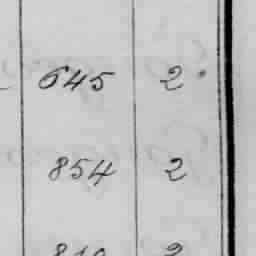 645 2
854 2